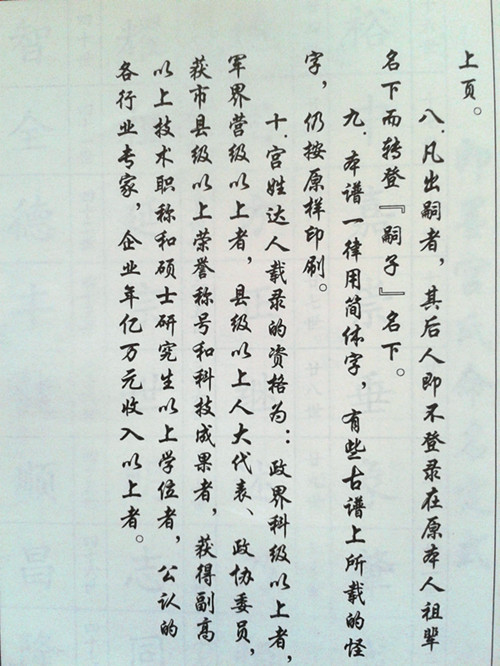 上页。
八.凡出嗣者，其后人即不登录在原本人祖辈
名下而转登『嗣子』名下。
九.本谱一律用简体字，有些古谱上所载的怪
字，仍按原样印刷。
十.宫姓达人载录的资格为：政界科级以上者，
军界营级以上者，县级以上人大代表、政协委员，
获市县级以上荣誉称号和科技成果者，获得副高
以上技术职称和硕士研究生以上学位者，公认的
各行业专家，企业年亿万元收入以上者。